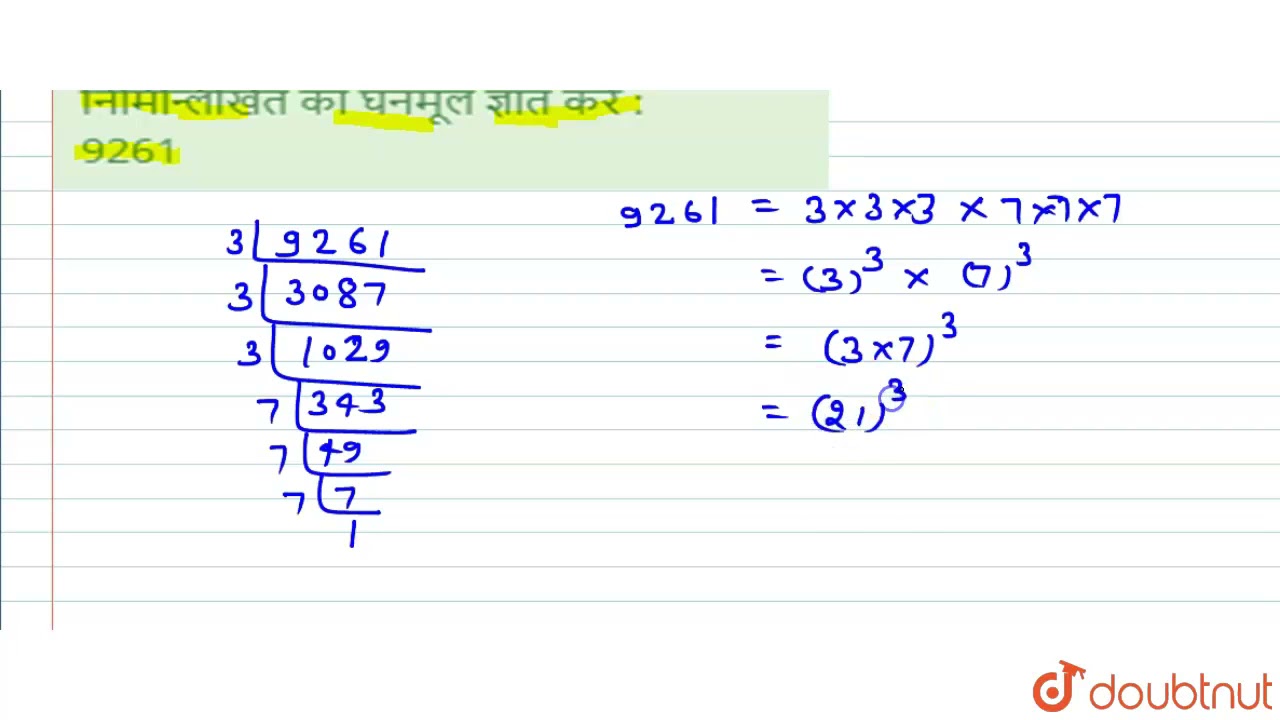 निम्नलिखित का घनमूल ज्ञात करें :
9261
3 9261
3 3087
3 1029
7 343
7 49
7 7
1
9261 = 3×3×3 × 7×7×7
= (3)³ × (7)³
= (3×7)³
= (21)³
doubtnut